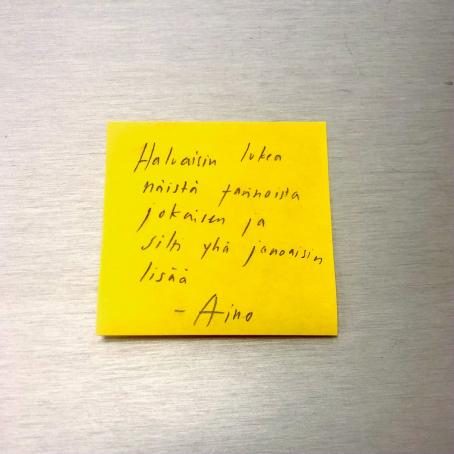 Haluaisin lukea
näistä tarinoista
jokaisen ja
silti yhä janoaisin
lisää
- Aino